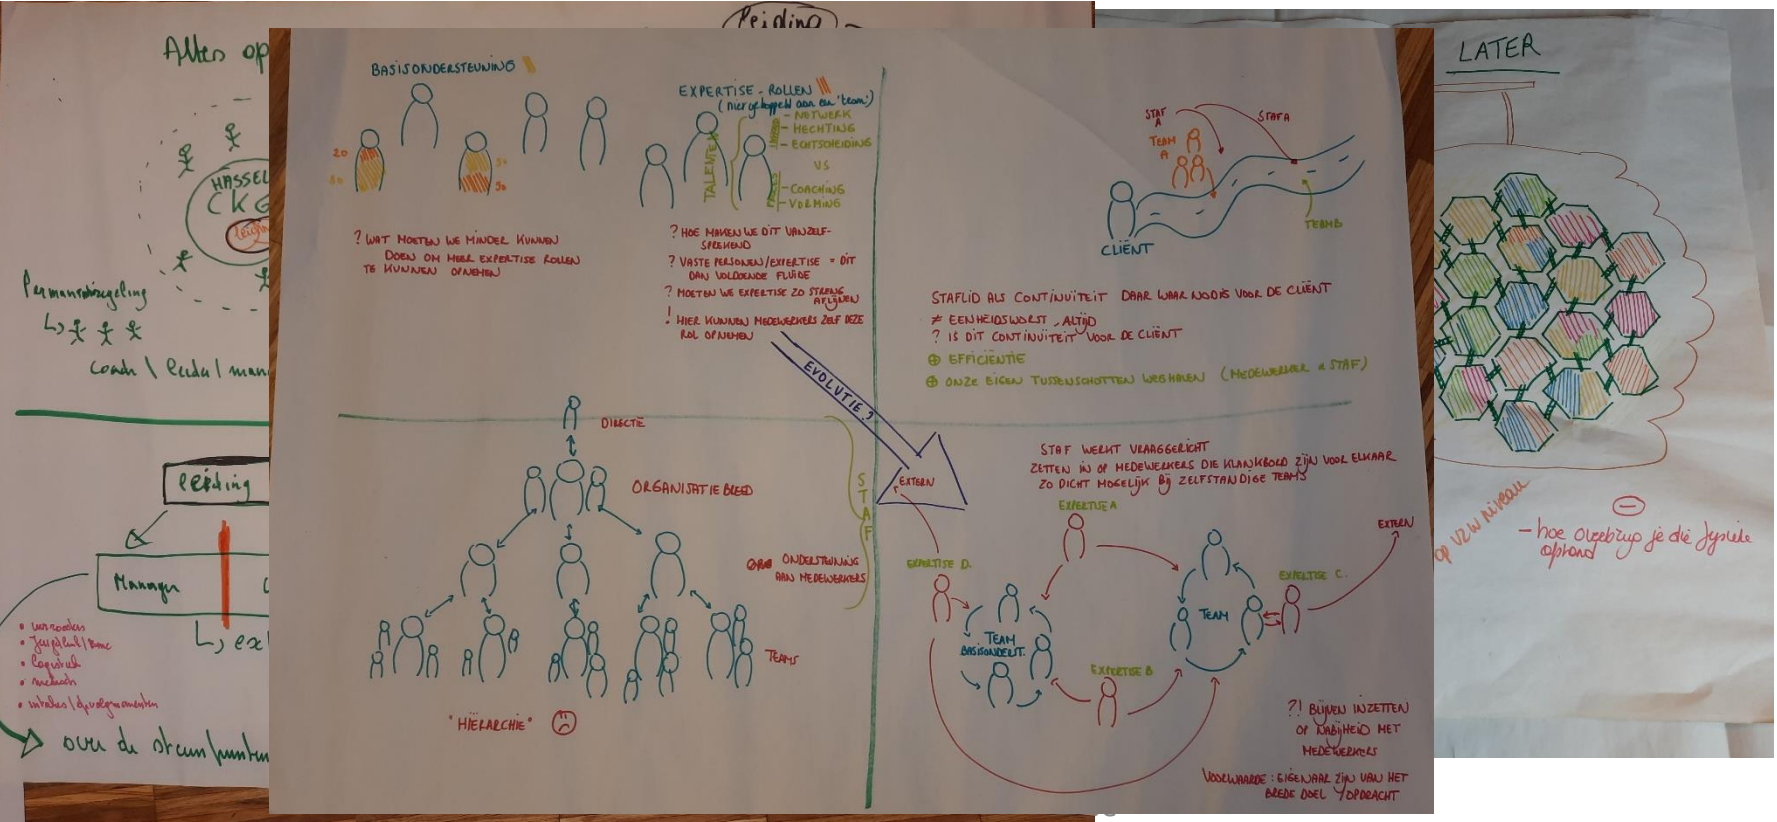 Alles op
HASSEL
CKG
Permanentieregeling
coach \ leider / man
leiding
Manager
L, ex
over de steunpunten
Leiding
BASISONDERSTEUNING
20
80
50
50
? WAT MOETEN WE MINDER KUNNEN
DOEN OM MEER EXPERTISE ROLLEN
TE KUNNEN OPNEMEN
EXPERTISE-ROLLEN
(niet gekoppeld aan een 'team')
TALENTEN
- NETWERK
- HECHTING
- ECHTSCHEIDING
VS
- COACHING
- VORMING
? HOE MAKEN WE DIT VANZELF-
SPREKEND
? VASTE PERSONEN/EXPERTISE = DIT
DAN VOLDOENDE FLUÏDE
? MOETEN WE EXPERTISE ZO STRENG
AFLIJNEN
! HIER KUNNEN MEDEWERKERS ZELF DEZE
ROL OPNEMEN
EVOLUTIE?
STAF
A
STAF A
TEAM
A
TEAM B
CLIËNT
STAFLID ALS CONTINUÏTEIT DAAR WAAR NODIG VOOR DE CLIËNT
≠ EENHEIDSWORST, ALTIJD
? IS DIT CONTINUÏTEIT VOOR DE CLIËNT
⊕ EFFICIËNTIE
⊕ ONZE EIGEN TUSSENSCHOTTEN WEGHALEN (MEDEWERKER & STAF)
DIRECTIE
ORGANISATIEBREED
ONDERSTEUNING
AAN MEDEWERKERS
TEAMS
STAF
"HIËRARCHIE"
STAF WERKT VRAAGGERICHT
ZETTEN IN OP MEDEWERKERS DIE KLANKBORD ZIJN VOOR ELKAAR
ZO DICHT MOGELIJK BIJ ZELFSTANDIGE TEAMS
EXTERN
EXPERTISE A
EXPERTISE D.
TEAM
BASISONDERST.
EXPERTISE B
TEAM
EXPERTISE C.
EXTERN
?! BLIJVEN INZETTEN
OP NABIJHEID MET
MEDEWERKERS
VOORWAARDE: EIGENAAR ZIJN VAN HET
BREDE DOEL / OPDRACHT
LATER
op VZW niveau
- hoe je die fysieke
afstand